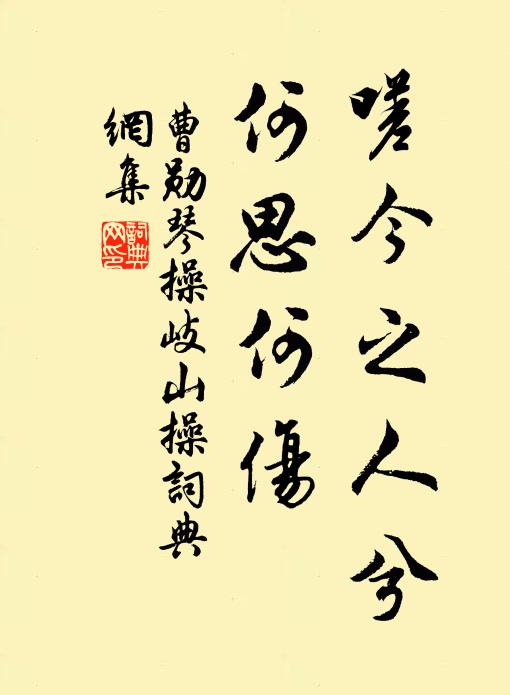 嗟今之人兮
何思何傷
曹勛琴操岐山操詞典
網集
詞典
网印